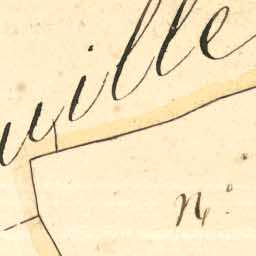 uille
n: